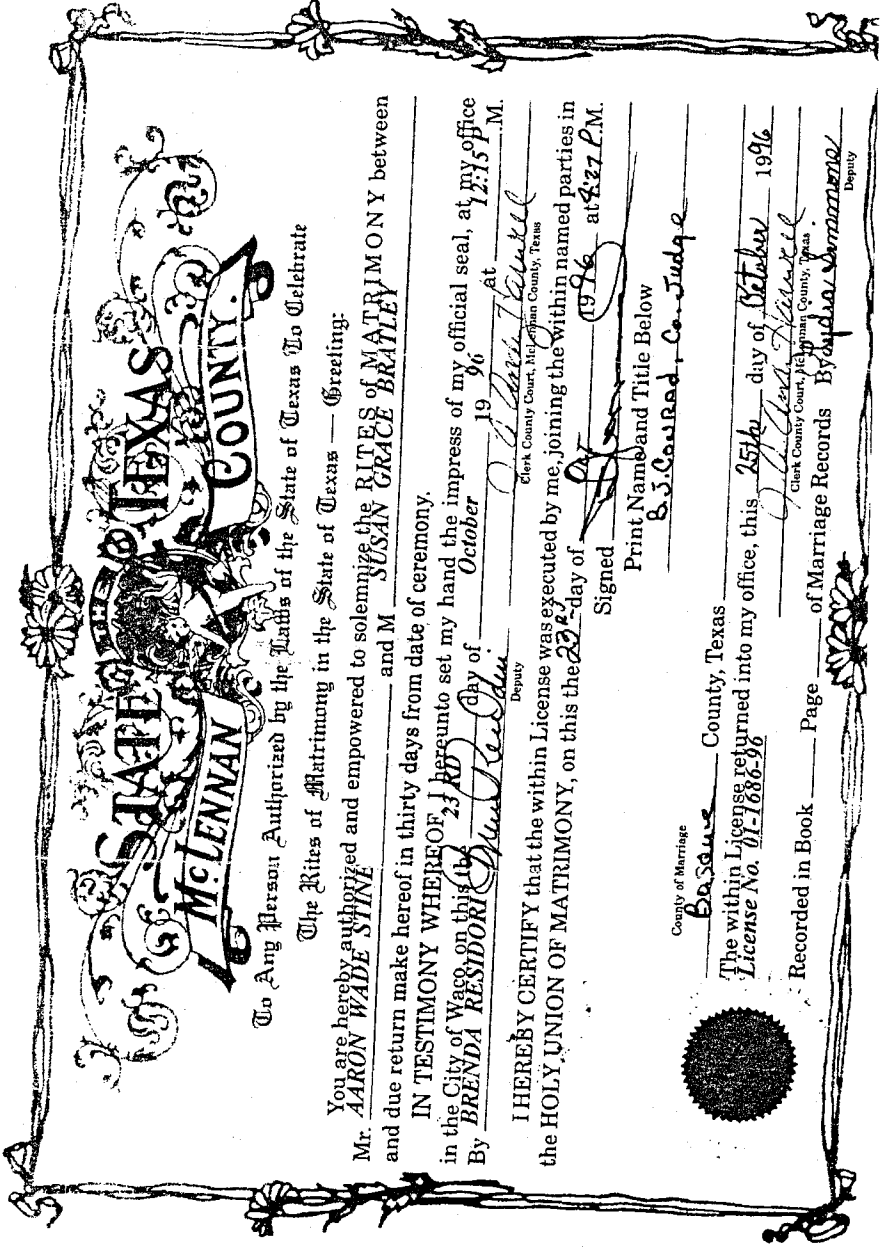 THE
STATE OF TEXAS
McLENNAN COUNTY.
To Any Person Authorized by the Laws of the State of Texas To Celebrate
The Rites of Matrimony in the State of Texas — Greeting:
You are hereby authorized and empowered to solemnize the RITES of MATRIMONY between
Mr. AARON WADE STINE and M SUSAN GRACE BRATLEY
and due return make hereof in thirty days from date of ceremony.
IN TESTIMONY WHEREOF, I hereunto set my hand the impress of my official seal, at my office
in the City of Waco, on this the 23 RD day of October 19 96 at 12:15 P.M.
By BRENDA RESIDORI
Deputy
Clerk County Court, McLennan County, Texas
I HEREBY CERTIFY that the within License was executed by me, joining the within named parties in
the HOLY UNION OF MATRIMONY, on this the 23rd day of 1996 at 4:27 P.M.
Signed
Print Name and Title Below
B.J. Conrad, Co. Judge
County of Marriage
Bosque County, Texas
The within License returned into my office, this 25th day of October 1996
License No. 01-1686-96
Clerk County Court, McLennan County, Texas
Recorded in Book Page of Marriage Records By Lydia Simmons
Deputy